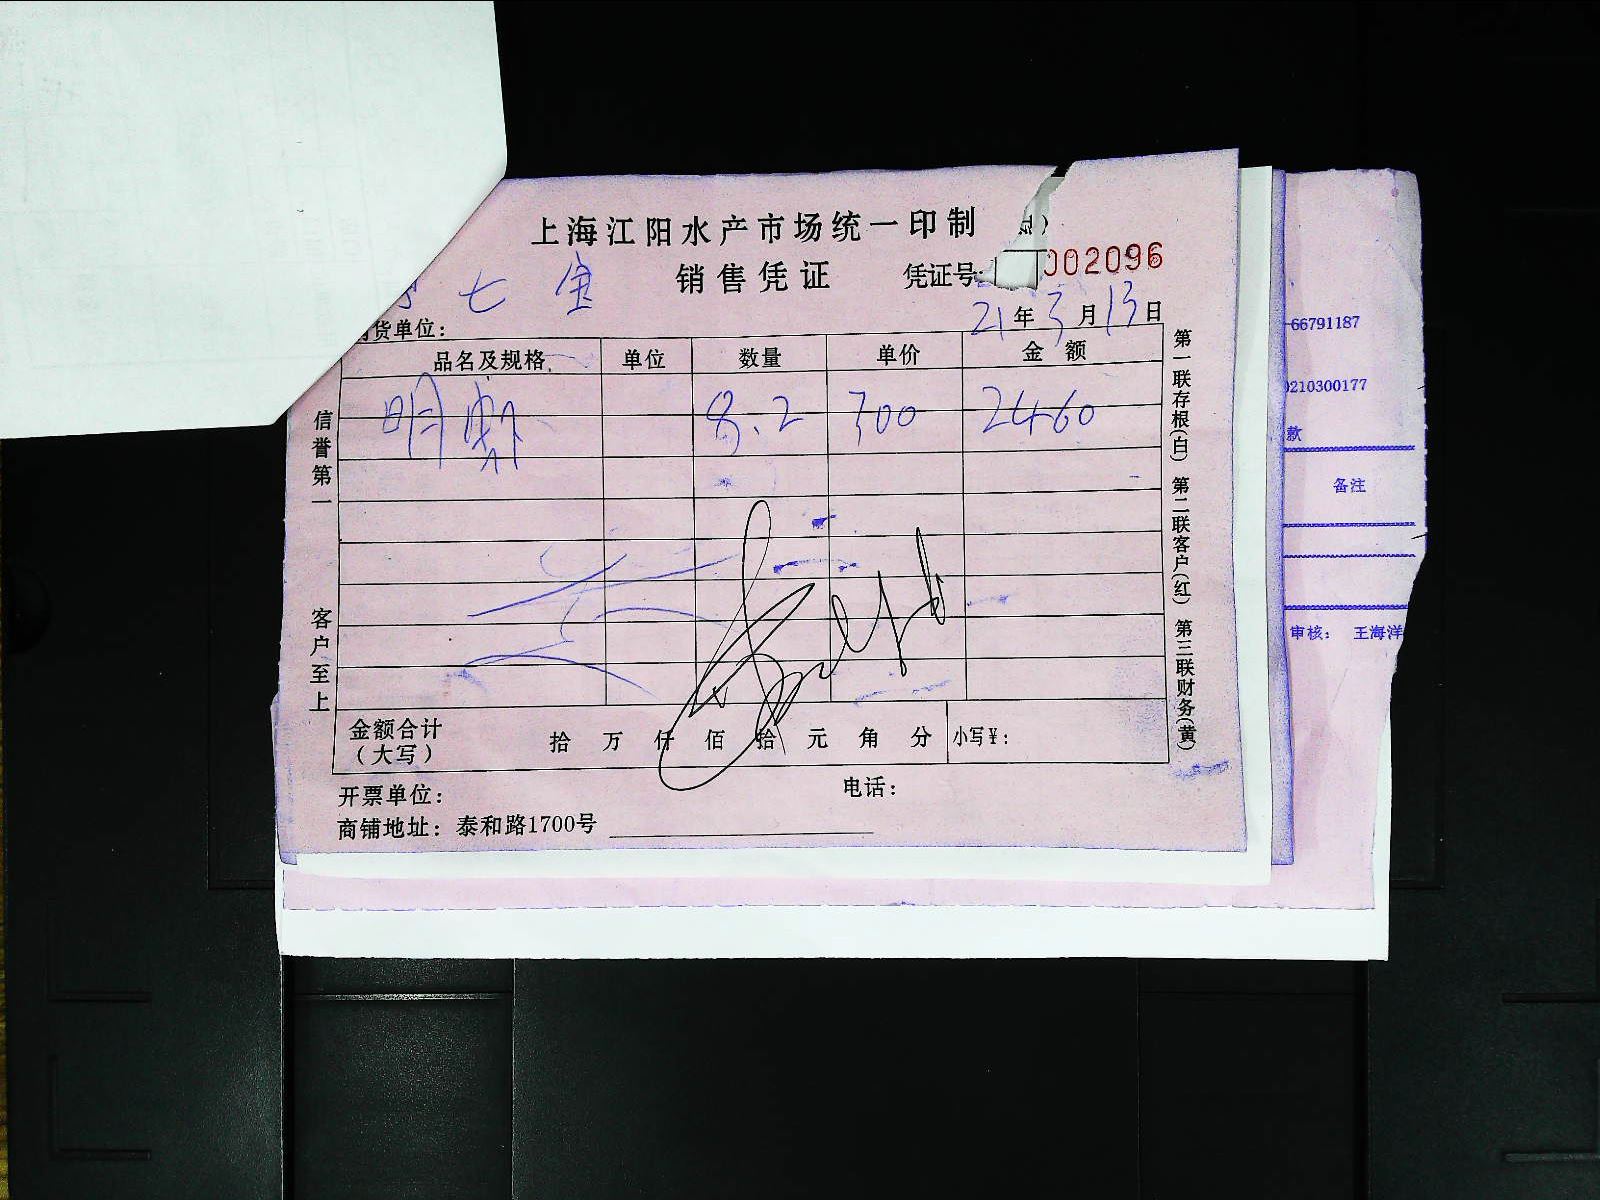 上海江阳水产市场统一印制
七宝
销售凭证
凭证号
002096
21年3月13日
货单位：
品名及规格 单位 数量 单价 金额
明虾 8.2 300 2460
信誉第一
客户至上
第一联存根(白) 第二联客户(红) 第三联财务(黄)
金额合计
（大写）
拾 万 仟 佰 拾 元 角 分 小写¥：
开票单位：
电话：
商铺地址：泰和路1700号
66791187
0210300177
款
备注
审核： 王海洋